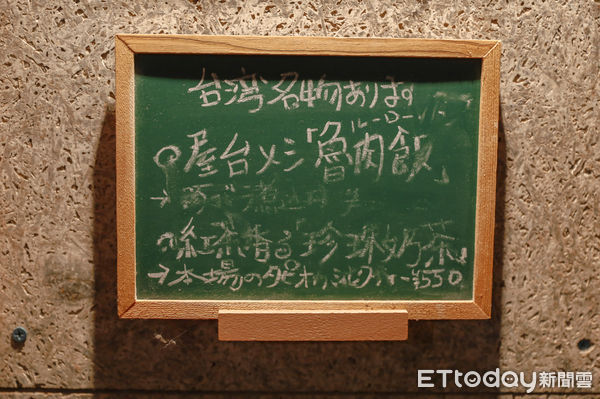 台湾名物あります
ルーロー
屋台メシ「魯肉飯」
紅茶香る「珍珠奶茶」
→本場のタピオカミルクティー ¥550
ETtoday新聞雲